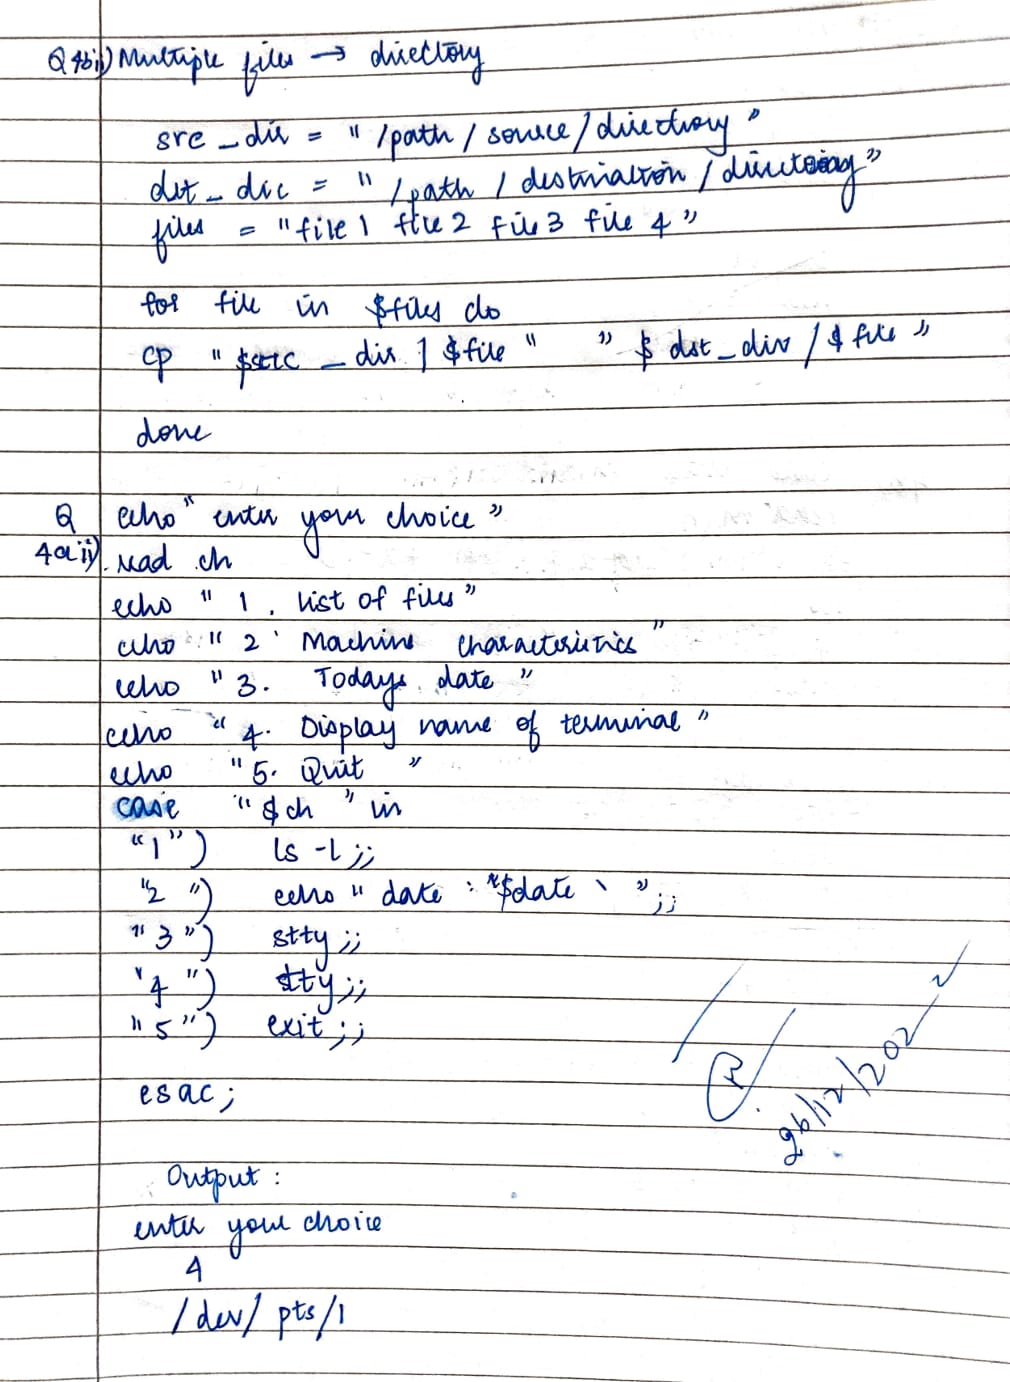 Q 4bii) Multiple files → directory
src_dir = "/path/source/directory"
dst_dir = "/path/destination/directory"
files = "file1 file2 file3 file4"
for file in $files do
cp "$src_dir/$file" "$dst_dir/$file"
done
Q echo "enter your choice"
4aii). read ch
echo "1. list of files"
echo "2. Machine characteristics"
echo "3. Todays date"
echo "4. Display name of terminal"
echo "5. Quit"
case "$ch" in
"1") ls -l ;;
"2") echo "date : `$date `";;
"3") stty ;;
"4") tty ;;
"5") exit ;;
esac;
26/12/202
Output :
enter your choice
4
/dev/pts/1